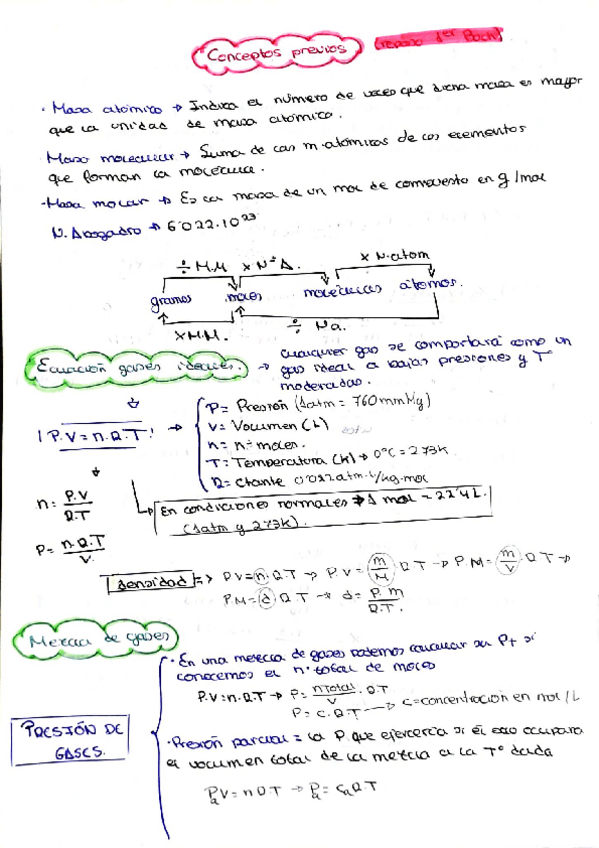 Conceptos previos (repaso 1er Bach)
· Masa atómica → Indica el número de veces que dicha masa es mayor
que la unidad de masa atómica.
· Masa molecular → Suma de las m. atómicas de los elementos
que forman la molécula.
· Masa molar → Es la masa de un mol de compuesto en g/mol
N. Avogadro → 6'022.10²³
÷ M.M. × Nº A. × N. atom
gramos moles moléculas átomos.
× M.M. ÷ Na.
Ecuación gases ideales. → Cualquier gas se comportará como un
gas ideal a bajas presiones y Tº
moderadas.
P.V = n.R.T →
P = Presión (1atm = 760mmHg)
V = Volumen (L)
n = nº moles.
T = Temperatura (K) → 0ºC = 273K
R = Ctante 0'082 atm.L/Kg.mol
En condiciones normales → 1 mol = 22'4L.
(1atm y 273K).
n = P.V / R.T
P = n.R.T / V.
densidad => PV = n.R.T → P.V = m/M R.T → P.M = m/V R.T →
P.M = d R.T → d = P.m / R.T.
Mezcla de gases
PRESIÓN DE
GASES.
· En una mezcla de gases podemos calcular su PT si
conocemos el nº total de moles
P.V = n.R.T → P = n Total / V . R.T
P = c.R.T → c = concentración en mol/L
· Presión parcial = la P que ejercería si él solo ocupara
el volumen total de la mezcla a la Tº dada
Pa V = n R T → Pa = ca R.T